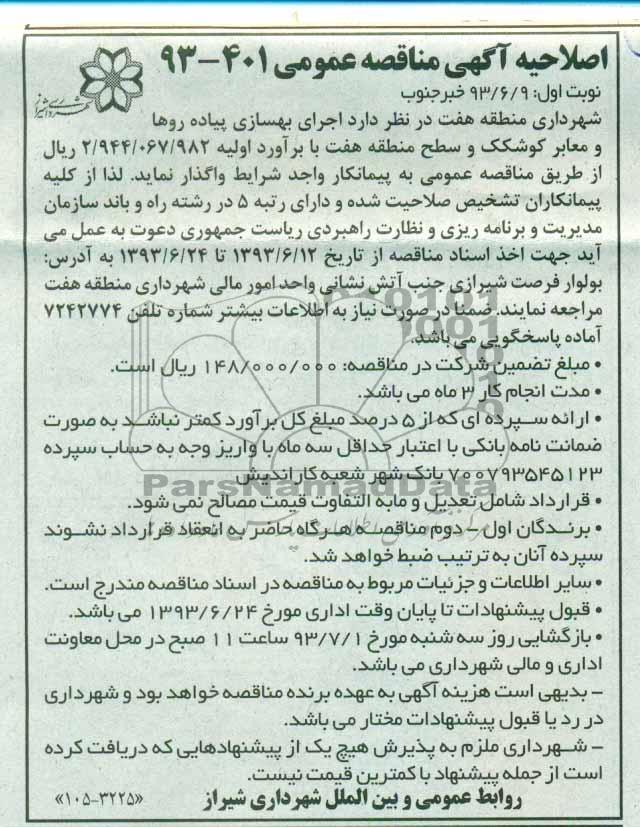 اصلاحیه آگهی مناقصه عمومی ۴۰۱-۹۳
نوبت اول: ۹۳/۶/۹ خبرجنوب
شهرداری منطقه هفت در نظر دارد اجرای بهسازی پیاده روها
و معابر کوشکک و سطح منطقه هفت با برآورد اولیه ۲/۹۴۴/۰۶۷/۹۸۲ ریال
از طریق مناقصه عمومی به پیمانکار واجد شرایط واگذار نماید. لذا از کلیه
پیمانکاران تشخیص صلاحیت شده و دارای رتبه ۵ در رشته راه و باند سازمان
مدیریت و برنامه ریزی و نظارت راهبردی ریاست جمهوری دعوت به عمل می
آید جهت اخذ اسناد مناقصه از تاریخ ۱۳۹۳/۶/۱۲ تا ۱۳۹۳/۶/۲۴ به آدرس:
بولوار فرصت شیرازی جنب آتش نشانی واحد امور مالی شهرداری منطقه هفت
مراجعه نمایند. ضمنا در صورت نیاز به اطلاعات بیشتر شماره تلفن ۷۲۴۲۷۷۴
آماده پاسخگویی می باشد.
• مبلغ تضمین شرکت در مناقصه: ۱۴۸/۰۰۰/۰۰۰ ریال است.
• مدت انجام کار ۳ ماه می باشد.
• ارائه سپرده ای که از ۵ درصد مبلغ کل برآورد کمتر نباشد به صورت
ضمانت نامه بانکی با اعتبار حداقل سه ماه یا واریز وجه به حساب سپرده
۷۰۰۷۹۳۵۴۵۱۲۳ بانک شهر شعبه کاراندیش
ParsNamadData
• قرارداد شامل تعدیل و مابه التفاوت قیمت مصالح نمی شود.
• برندگان اول – دوم مناقصه هرگاه حاضر به انعقاد قرارداد نشوند
سپرده آنان به ترتیب ضبط خواهد شد.
• سایر اطلاعات و جزئیات مربوط به مناقصه در اسناد مناقصه مندرج است.
• قبول پیشنهادات تا پایان وقت اداری مورخ ۱۳۹۳/۶/۲۴ می باشد.
• بازگشایی روز سه شنبه مورخ ۹۳/۷/۱ ساعت ۱۱ صبح در محل معاونت
اداری و مالی شهرداری می باشد.
– بدیهی است هزینه آگهی به عهده برنده مناقصه خواهد بود و شهرداری
در رد یا قبول پیشنهادات مختار می باشد.
– شهرداری ملزم به پذیرش هیچ یک از پیشنهادهایی که دریافت کرده
است از جمله پیشنهاد با کمترین قیمت نیست.
روابط عمومی و بین الملل شهرداری شیراز
«۱۰۵-۳۲۲۵»